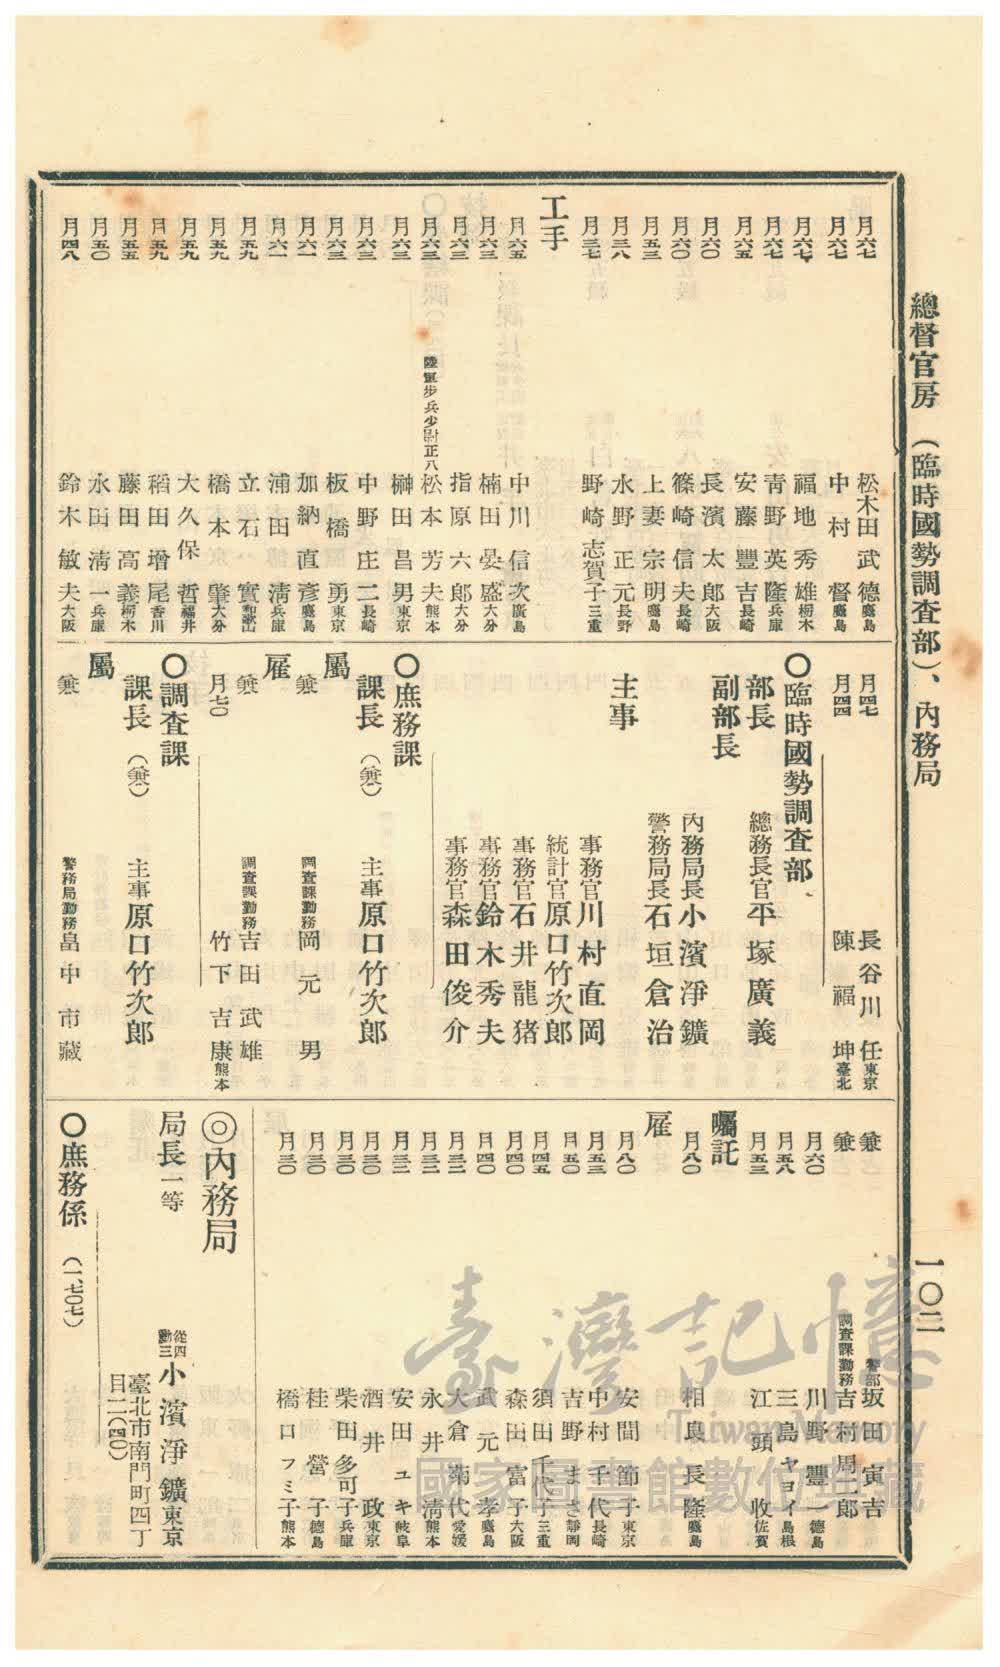 總督官房 （臨時國勢調査部）、內務局
一〇二
月六七 松木田武德 鹿兒島
月六七 中村督 鹿兒島
月六七 福地秀雄 栃木
月六七 靑野英隆 兵庫
月六五 安藤豐吉 長崎
月六〇 長濱太郎 大阪
月六〇 篠崎信夫 長崎
月五三 上妻宗明 鹿兒島
月三八 水野正元 長野
月三七 野崎志賀子 三重
工手
月六五 中川信次 廣島
月六三 楠田晏盛 大分
月六三 指原六郎 大分
月六三 陸軍步兵少尉正八 松本芳夫 熊本
月六三 榊田昌男 東京
月六三 中野庄二 長崎
月六三 板橋勇 東京
月六一 加納直彥 鹿兒島
月六一 浦田淸 兵庫
月五九 立石實 和歌山
月五九 橋本肇 大分
月五九 大久保哲 福井
月五九 稻田增尾 香川
月五五 藤田高義 栃木
月五〇 永田淸一 兵庫
月四八 鈴木敏夫 大阪
月四七 長谷川任 東京
月四四 陳福坤 臺北
〇臨時國勢調査部
部長 總務長官 平塚廣義
副部長 內務局長 小濱淨鑛
警務局長 石垣倉治
主事 事務官 川村直岡
統計官 原口竹次郎
事務官 石井龍猪
事務官 鈴木秀夫
事務官 森田俊介
〇庶務課
課長 （兼） 主事 原口竹次郎
屬
兼 調査課勤務 岡元男
雇
兼 調査課勤務 吉田武雄
月七〇 竹下吉康 熊本
〇調査課
課長 （兼） 主事 原口竹次郎
屬
兼 警務局勤務 畠中市藏
兼 警部 坂田寅吉
兼 調査課勤務 吉村周二郎
月六〇 川野豐一 德島
月五八 三島キヨイ 島根
月五三 江頭收 佐賀
囑託
月八〇 相良長隆 鹿兒島
雇
月八〇 安間節子 東京
月五三 中村千代 長崎
月五〇 吉野まさ 靜岡
月四五 須田千代子 三重
月四〇 森田富子 大阪
月四〇 武元孝 鹿兒島
月三二 大倉菊代 愛媛
月三二 永井淸 熊本
月三二 安田ユキ 岐阜
月三〇 酒井政 東京
月三〇 柴田多可子 兵庫
月三〇 桂營子 德島
月三〇 橋口フミ子 熊本
◎內務局
局長一等 從四勳三 小濱淨鑛 東京
臺北市南門町四丁
目二（四〇）
〇庶務係 （一、七〇七）
臺灣記憶
Taiwan Memory
國家圖書館數位典藏